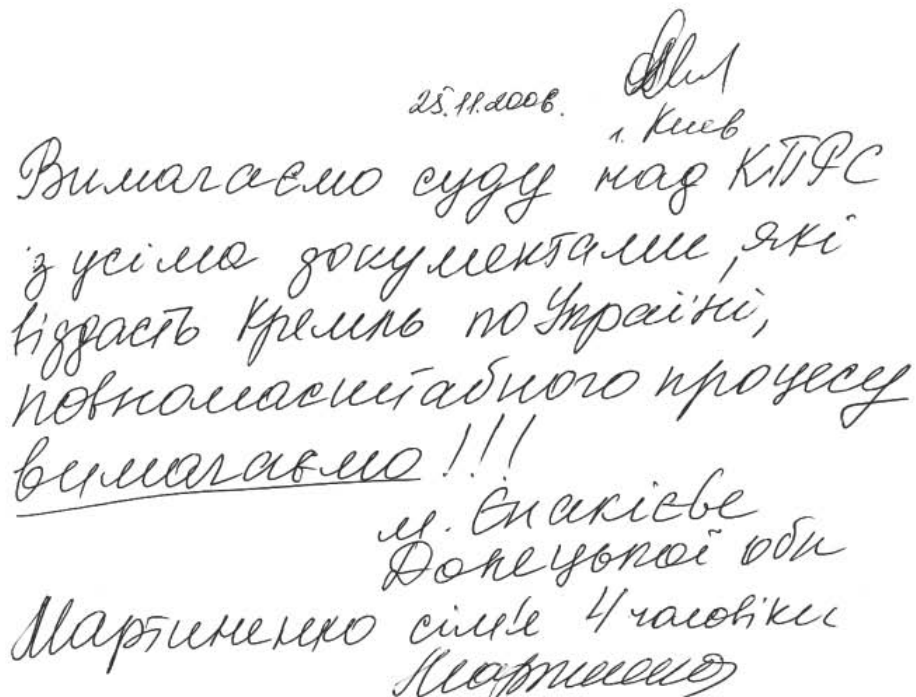 25.11.2006.
г. Киев
Вимагаємо суду над КПРС
з усіма документами, які
віддасть Кремль по Україні,
повномасштабного процесу
вимагаємо!!!
м. Єнакієве
Донецької обл
Мартиненко сім'я 4 чоловіки